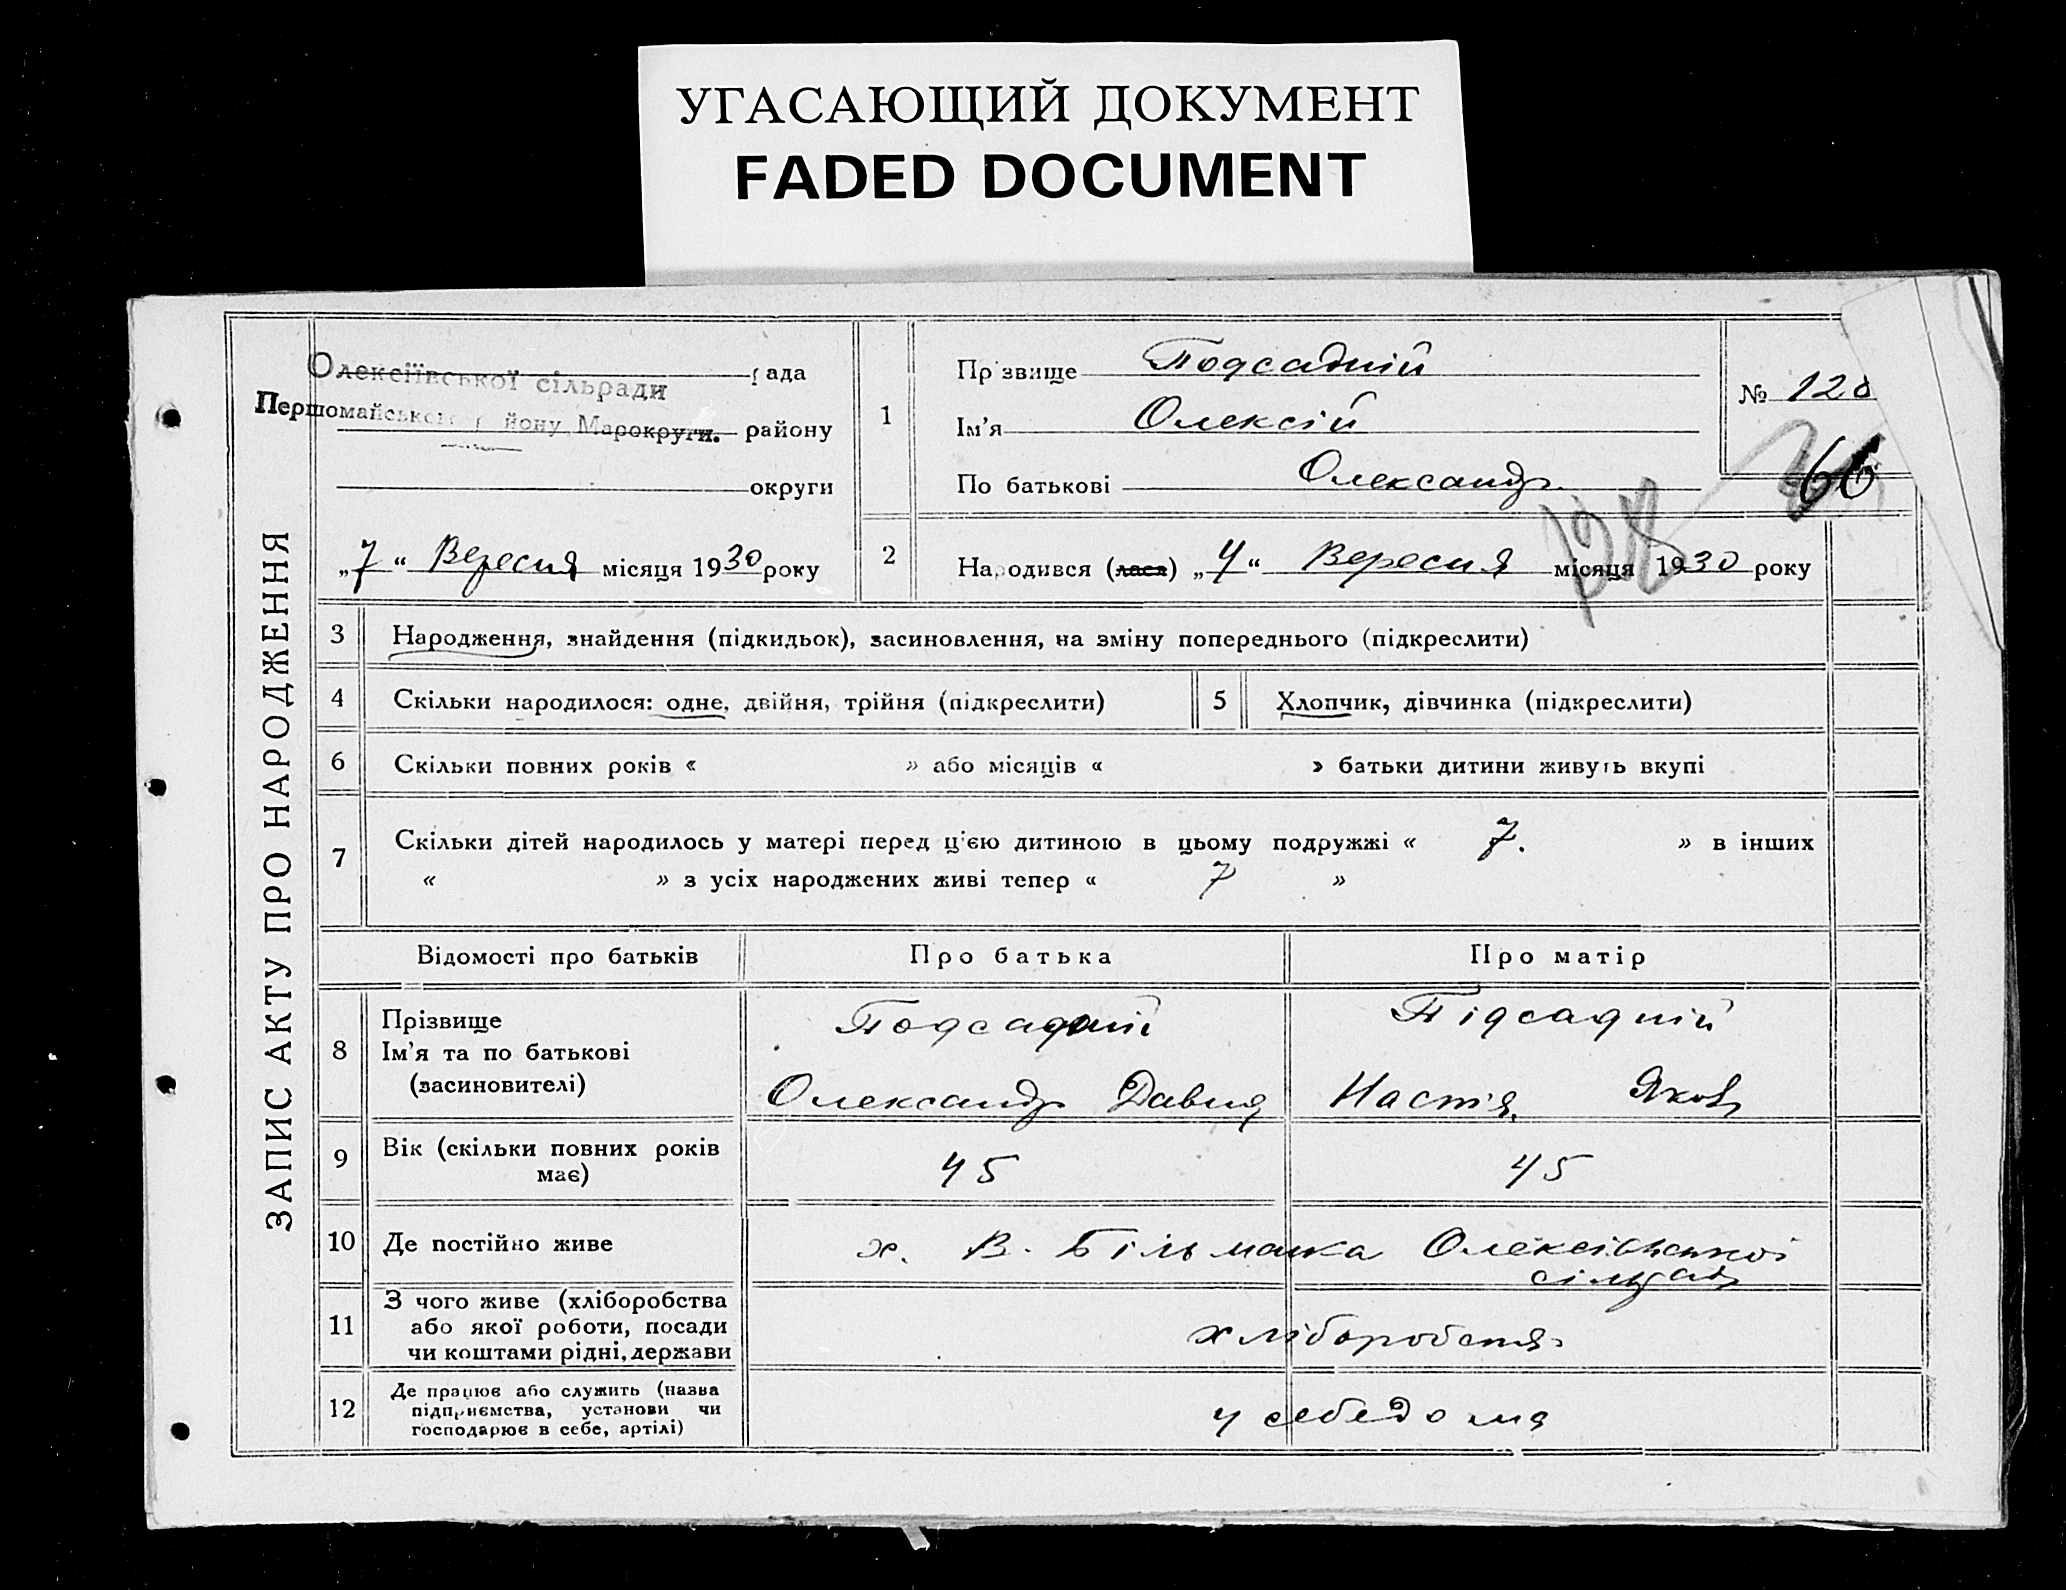 УГАСАЮЩИЙ ДОКУМЕНТ
FADED DOCUMENT
ЗАПИС АКТУ ПРО НАРОДЖЕННЯ
Олексіївської сільради рада
Першомайської району, Марокруги. району
округи
„7“ Вересня місяця 1930 року
1
Прізвище Подсадній
Ім’я Олексій
По батькові Олександр.
№ 128
66
128
2
Народився (лася) „4“ Вересня місяця 1930 року
3 Народження, знайдення (підкидьок), засиновлення, на зміну попереднього (підкреслити)
4 Скільки народилося: одне, двійня, трійня (підкреслити)
5 Хлопчик, дівчинка (підкреслити)
6 Скільки повних років « » або місяців « » батьки дитини живуть вкупі
7 Скільки дітей народилось у матері перед цією дитиною в цьому подружжі « 7. » в інших
« » з усіх народжених живі тепер « 7 »
Відомості про батьків Про батька Про матір
8 Прізвище
Ім’я та по батькові
(засиновителі)
Подсадній
Олександр Давид
Підсадній
Настя Яков
9 Вік (скільки повних років
має)
45 45
10 Де постійно живе
х. В. Більманка Олексіївської
сільрад
11 З чого живе (хліборобства
або якої роботи, посади
чи коштами рідні, держави
хліборобств
12 Де працює або служить (назва
підприємства, установи чи
господарює в себе, артілі)
у себе дома